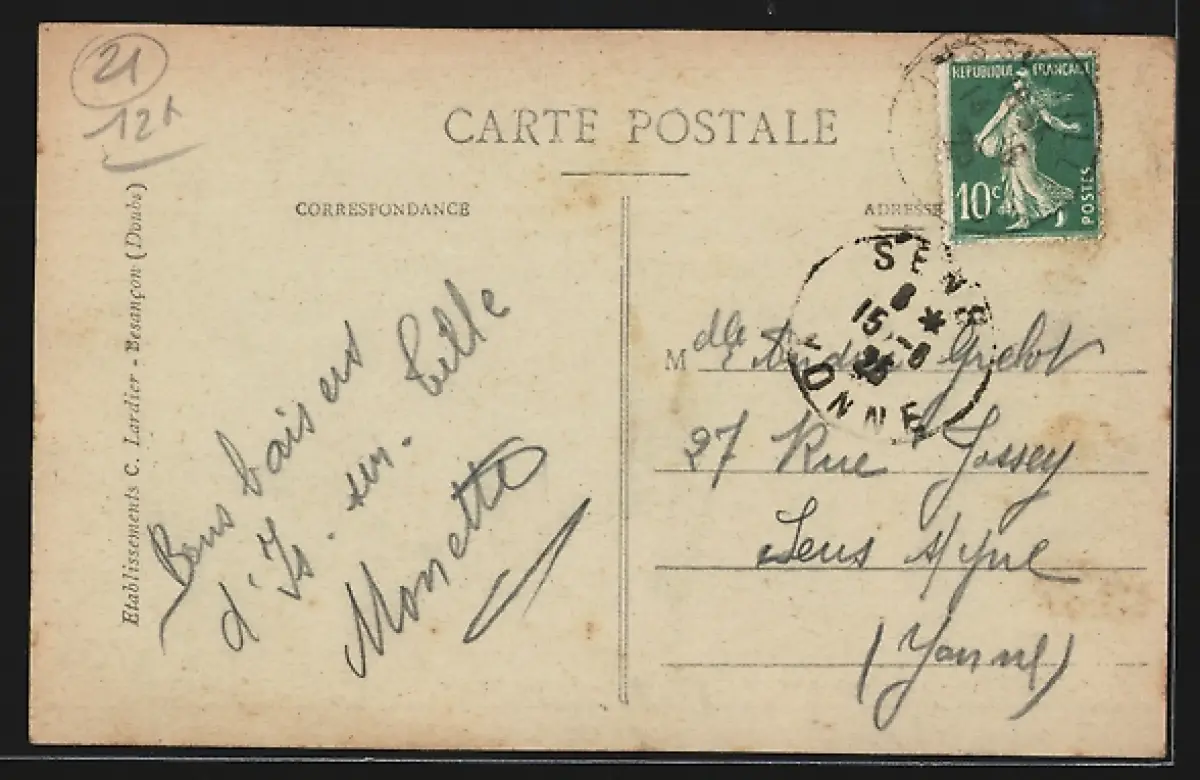 21
12+
CARTE POSTALE
CORRESPONDANCE
ADRESSE
REPUBLIQUE FRANÇAISE
10c
POSTES
SENS
8 *
15 - 8
25
YONNE
Etablissements C. Lardier - Besançon (Doubs)
Bons baisers
d'Is. sur. tille
Monette
Mdlle Andrée Gridot
27 Rue Jossey
Sens s/yne
(Yonne)